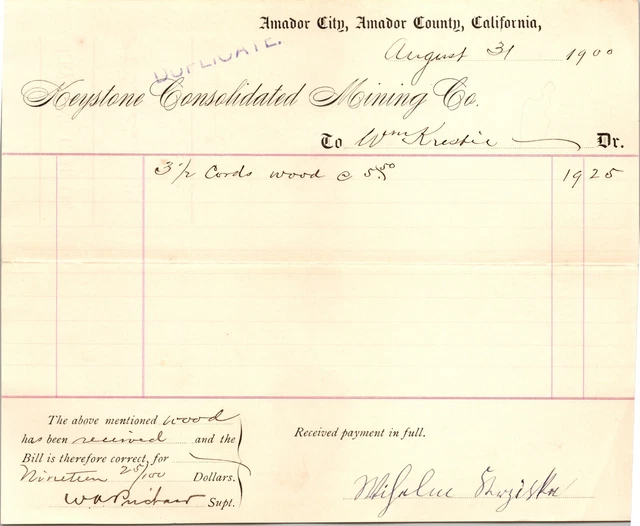 Amador City, Amador County, California,
DUPLICATE.
August 31 1900
Keystone Consolidated Mining Co.
To Wm Dr.
3 1/2 Cords wood @ 5.50 19 25
The above mentioned wood
has been received and the
Bill is therefore correct, for
Nineteen 25/100 Dollars.
Supt.
Received payment in full.
Wilhelm